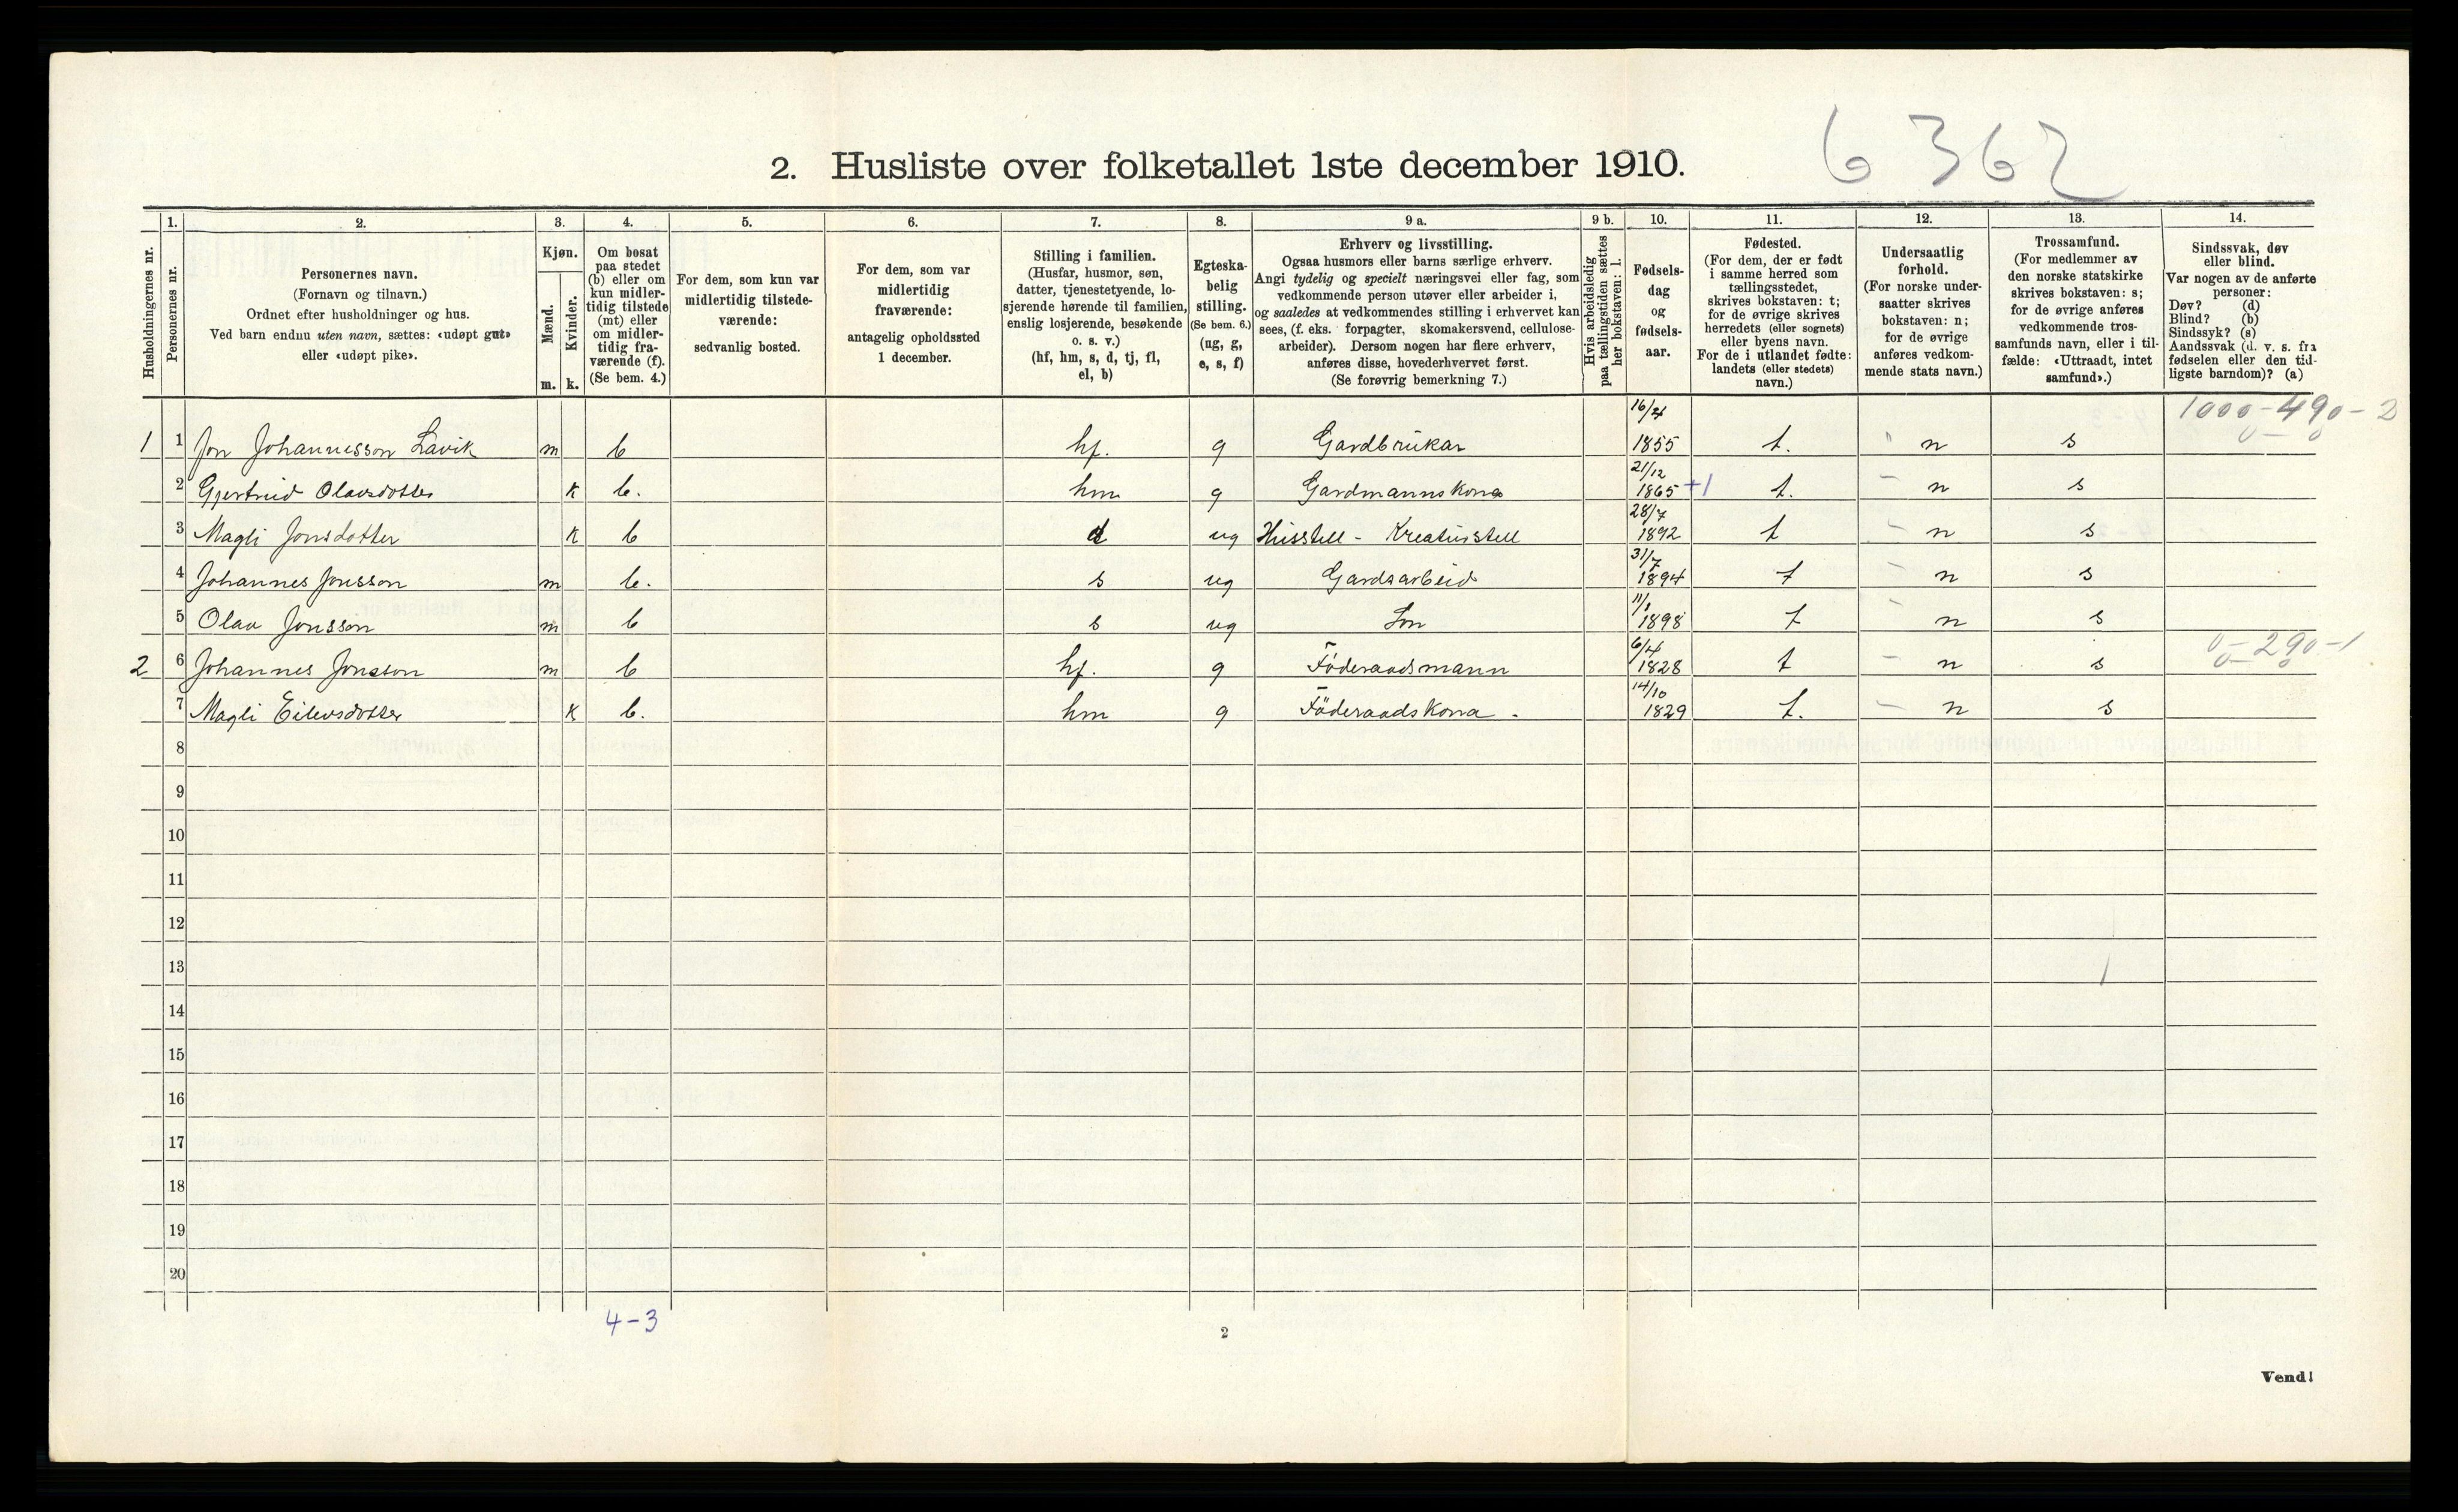 6 362
2. Husliste over folketallet 1ste december 1910.
Husholdningernes nr.
1. Personernes nr.
2. Personernes navn.
(Fornavn og tilnavn.)
Ordnet efter husholdninger og hus.
Ved barn endnu uten navn, sættes: «udøpt gut»
eller «udøpt pike».
3. Kjøn.
Mænd. m.
Kvinder. k.
4. Om bosat
paa stedet
(b) eller om
kun midler-
tidig tilstede
(mt) eller
om midler-
tidig fra-
værende (f).
(Se bem. 4.)
5. For dem, som kun var
midlertidig tilstede-
værende:
sedvanlig bosted.
6. For dem, som var
midlertidig
fraværende:
antagelig opholdssted
1 december.
7. Stilling i familien.
(Husfar, husmor, søn,
datter, tjenestetyende, lo-
sjerende hørende til familien,
enslig losjerende, besøkende
o. s. v.)
(hf, hm, s, d, tj, fl,
el, b)
8. Egteska-
belig
stilling.
(Se bem. 6.)
(ug, g,
e, s, f)
9 a. Erhverv og livsstilling.
Ogsaa husmors eller barns særlige erhverv.
Angi tydelig og specielt næringsvei eller fag, som
vedkommende person utøver eller arbeider i,
og saaledes at vedkommendes stilling i erhvervet kan
sees, (f. eks. forpagter, skomakersvend, cellulose-
arbeider). Dersom nogen har flere erhverv,
anføres disse, hovederhvervet først.
(Se forøvrig bemerkning 7.)
9 b. Hvis arbeidsledig
paa tællingstiden sættes
her bokstaven: l.
10. Fødsels-
dag
og
fødsels-
aar.
11. Fødested.
(For dem, der er født
i samme herred som
tællingsstedet,
skrives bokstaven: t;
for de øvrige skrives
herredets (eller sognets)
eller byens navn.
For de i utlandet fødte:
landets (eller stedets)
navn.)
12. Undersaatlig
forhold.
(For norske under-
saatter skrives
bokstaven: n;
for de øvrige
anføres vedkom-
mende stats navn.)
13. Trossamfund.
(For medlemmer av
den norske statskirke
skrives bokstaven: s;
for de øvrige anføres
vedkommende tros-
samfunds navn, eller i til-
fælde: «Uttraadt, intet
samfund».)
14. Sindssvak, døv
eller blind.
Var nogen av de anførte
personer:
Døv? (d)
Blind? (b)
Sindssyk? (s)
Aandssvak (d. v. s. fra
fødselen eller den tid-
ligste barndom)? (a)
1000-490-2
0-0
1 1 Jon Johannesson Lavik m b hf. g Gardbrukar 16/4 1855 t. " n s
2 Gjertrud Olavsdotter k b. hm g Gardmannskona 21/12 1865 +1 t. - n s
3 Magli Jonsdotter k b d ug Husstell - Kreaturstell 28/7 1892 t - n s
4 Johannes Jonsson m b. s ug Gardsarbeid 31/7 1894 t - n s
5 Olav Jonsson m b s ug Son 11/1 1898 t - n s
0-290-1
0-0
2 6 Johannes Jonsson m b hf. g Föderaadsmann 6/4 1828 t - n s
7 Magli Eilevsdotter k b. hm g Föderaadskona. 14/10 1829 t. - n s
8
9
10
11
12
13
14
15
16
17
18
19
20
4-3
2
Vend!